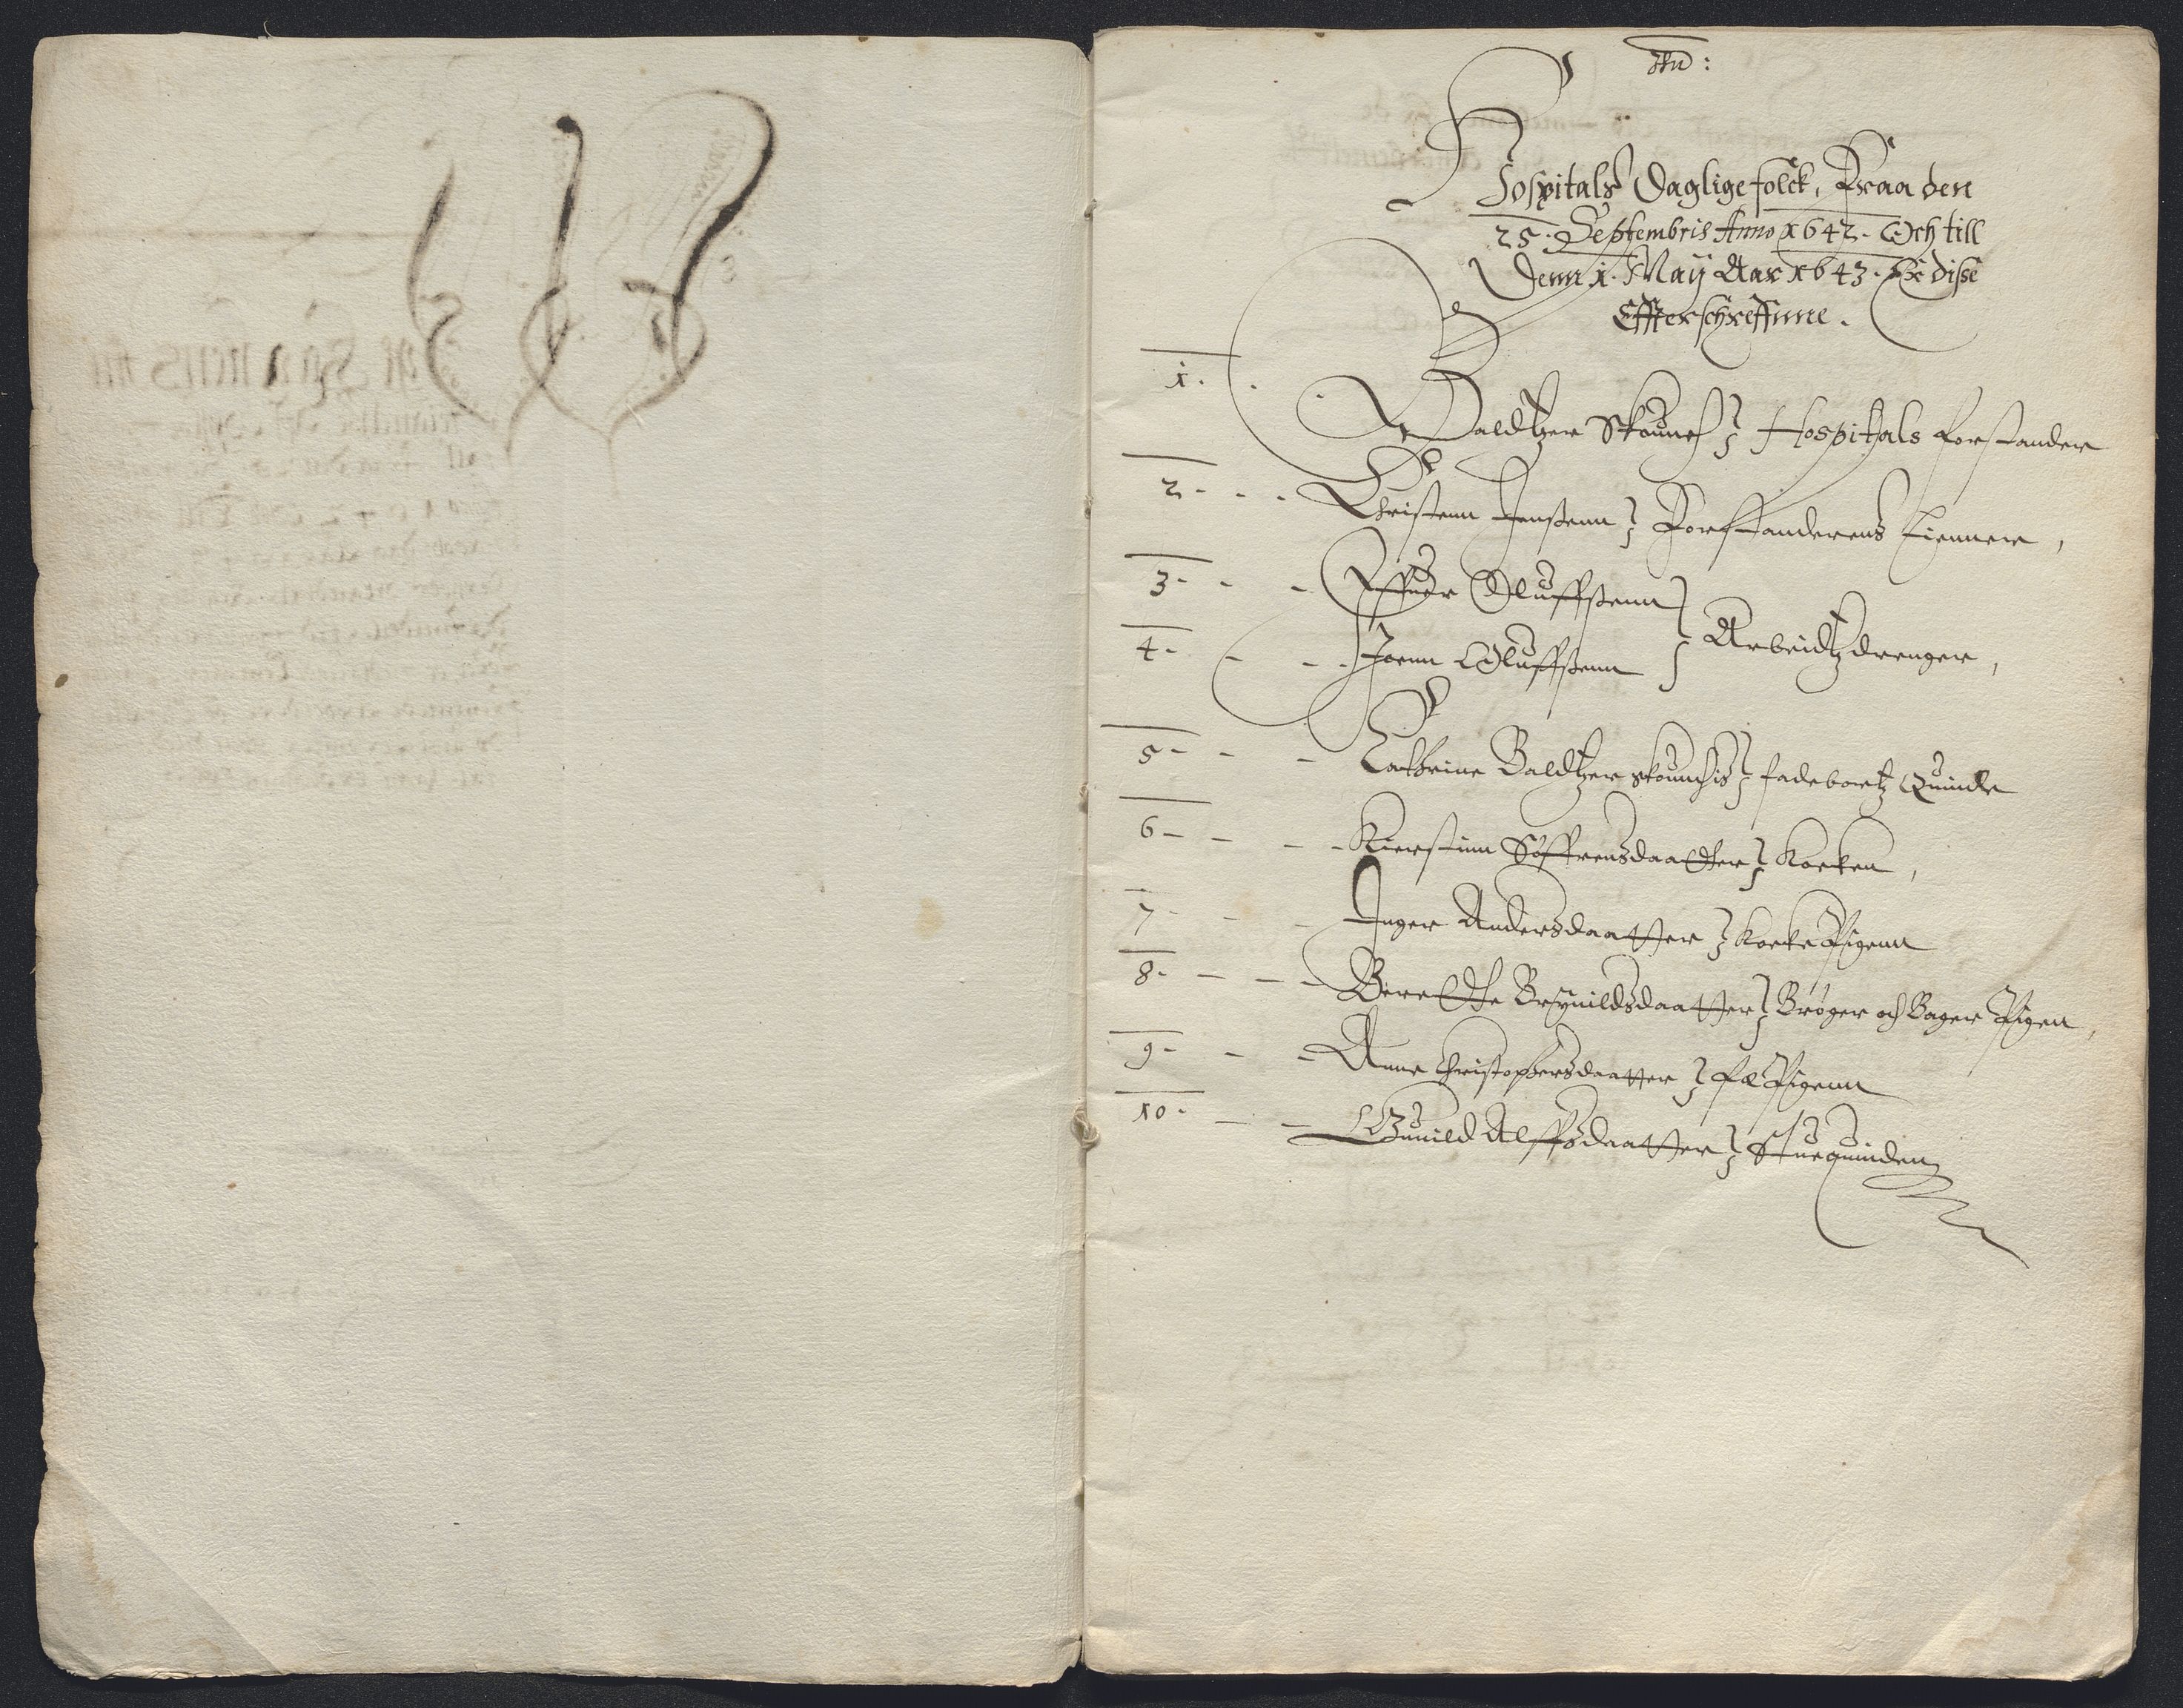 Hospitals Daglige folck, Fraa den
25. Septembris Anno 1642. Och till
Denn 1. Maÿ Aar 1643. Er disse
Effterschreffnne.
1. Baldtzer Skounck Hospitals forstander
2 - - - Christenn Jenssenn Forstanderens tiennere,
3 - - - Effuer Oluffssenn
4 - - - Joenn Oluffssenn Arbeidtzdrenger,
5 - - - Cathrine Baldtzer fadebortz Quinde
6 - - - Kierstinn Søffrensdaatther Kocken,
7 - - - Inger Andersdaatter Kocke Pigenn
8 - - - Berette Brÿnildsdaatter Brøger och Bager Pigen,
9 - - - Anne Christophersdaatter fæ Pigenn
10 - - - Gunild Alffsdaatter Stuequinden